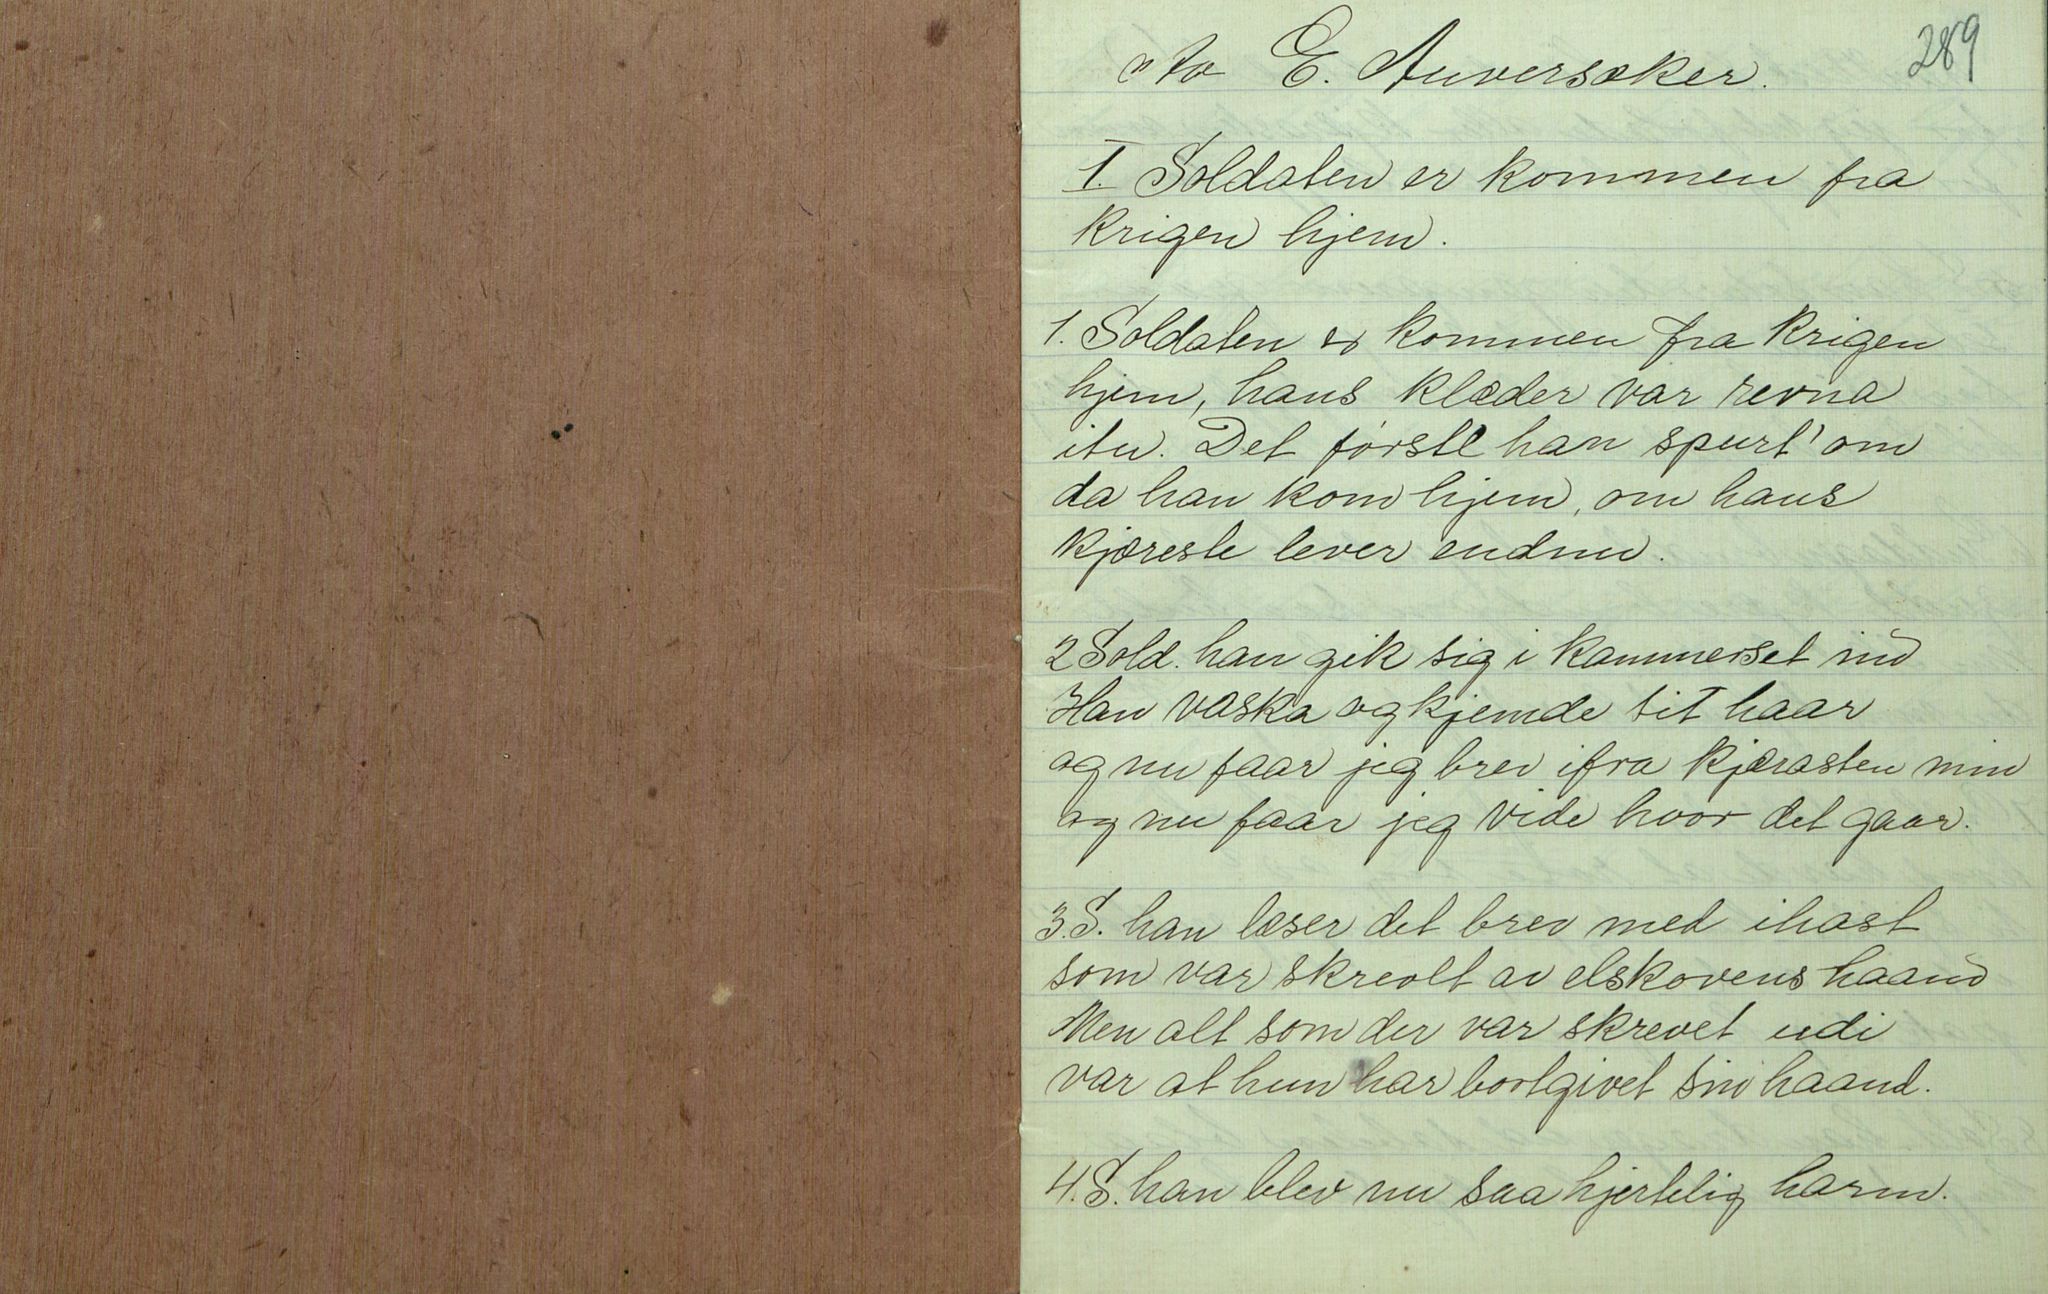 Av E. Anversaker.
289
I. Soldaten er kommen fra
krigen hjem.
1. Soldaten er kommen fra krigen
hjem, hans klæder var revna
itu. Det første han spurt' om
da han kom hjem, om hans
kjæreste lever endnu.
2 Sold. han gik sig i kammerset ind
Han vaska og kjemde sit haar
og nu faar jeg brev ifra kjærasten min
og nu faar jeg vide hvor det gaar.
3. S. han læser det brev med ihast
som var skrevet av elskovens haand
Men alt som der var skrevet udi
var at hun har bortgivet sin haand.
4. S. han blev nu saa hjertelig harm.